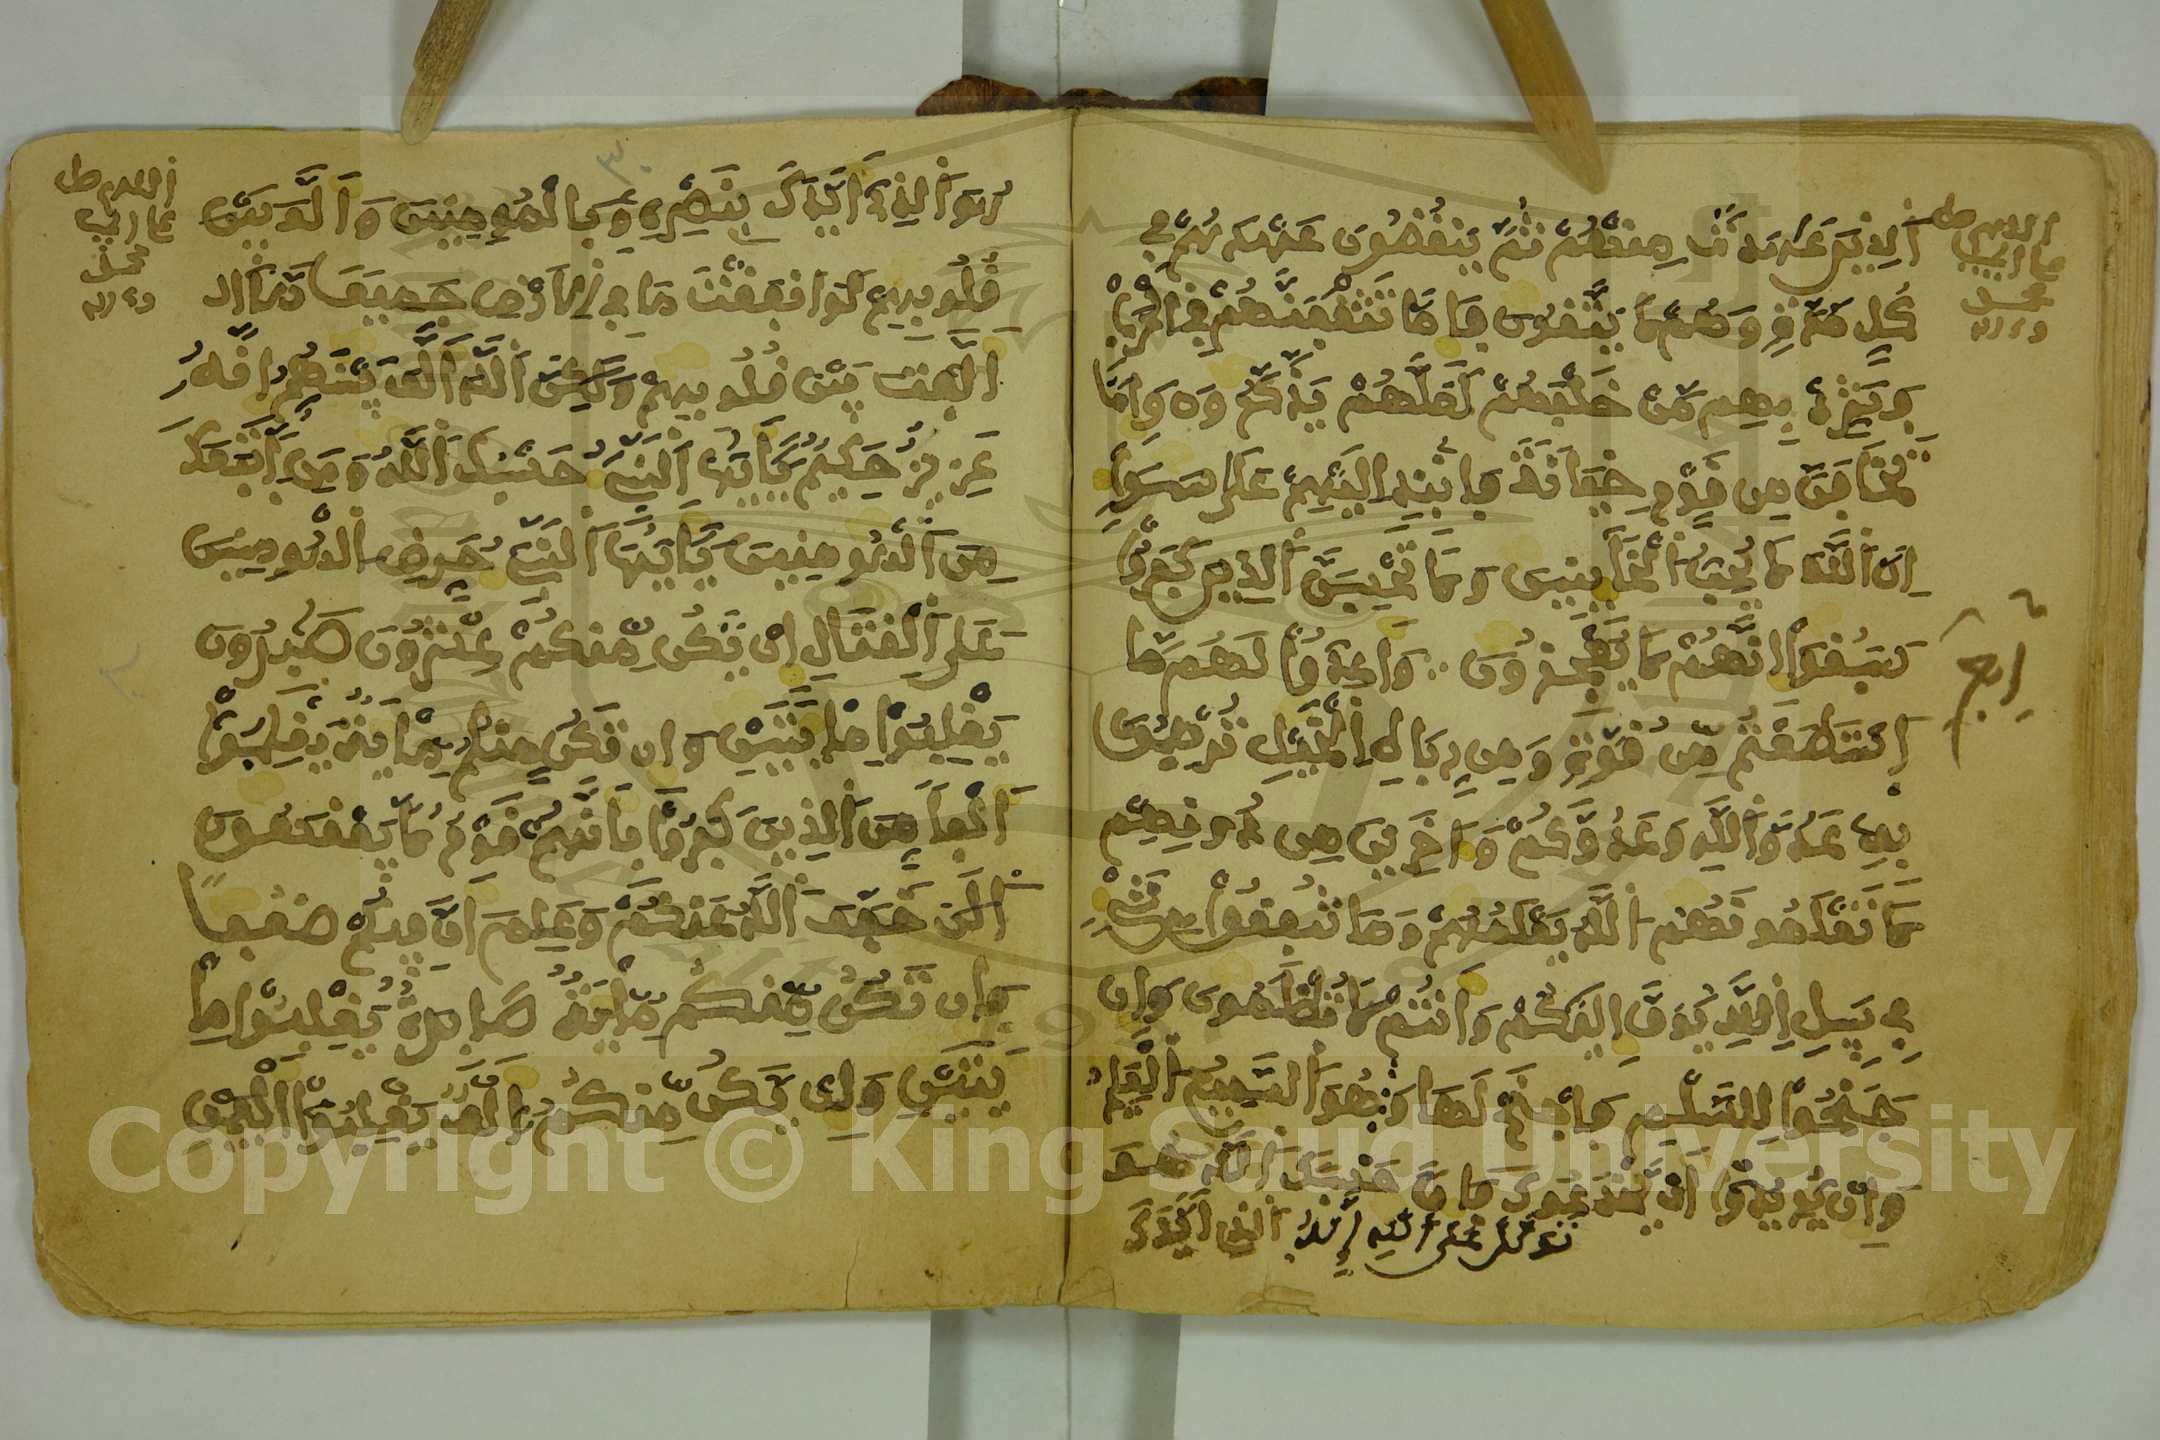 الذين عهدت منهم ثم ينقضون عهدهم في
كل مرة وهم لا يتقون فاما تثقفنهم في الحرب
فشرد بهم من خلفهم لعلهم يذكرون واما
تخافن من قوم خيانة فانبذ اليهم على سواء
ان الله لا يحب الخاينين ولا تحسبن الذين كفروا
سبقوا انهم لا يعجزون واعدوا لهم ما
استطعتم من قوة ومن رباط الخيل ترهبون
به عدو الله وعدوكم واخرين من دونهم
لا تعلمونهم الله يعلمهم وما تنفقوا من شيء
في سبيل الله يوف اليكم وانتم لا تظلمون وان
جنحوا للسلم فاجنح لها وتوكل على الله انه هو السميع العليم
وان يريدوا ان يخدعوك فان حسبك الله هو
الذي ايدك
هو الذي ايدك بنصره وبالمومنين والف بين
قلوبهم لو انفقت ما في الارض جميعا ما
الفت بين قلوبهم ولكن الله الف بينهم انه
عزيز حكيم يايها النبي حسبك الله ومن اتبعك
من المومنين يايها النبي حرض المومنين
على القتال ان يكن منكم عشرون صبرون
يغلبوا مايتين وان تكن منكم ماية يغلبوا
الفا من الذين كفروا بانهم قوم لا يفقهون
الن خفف الله عنكم وعلم ان فيكم ضعفا
فان تكن منكم ماية صابرة يغلبوا ما
يتين وان يكن منكم الف يغلبوا الفين
Copyright © King Saud University